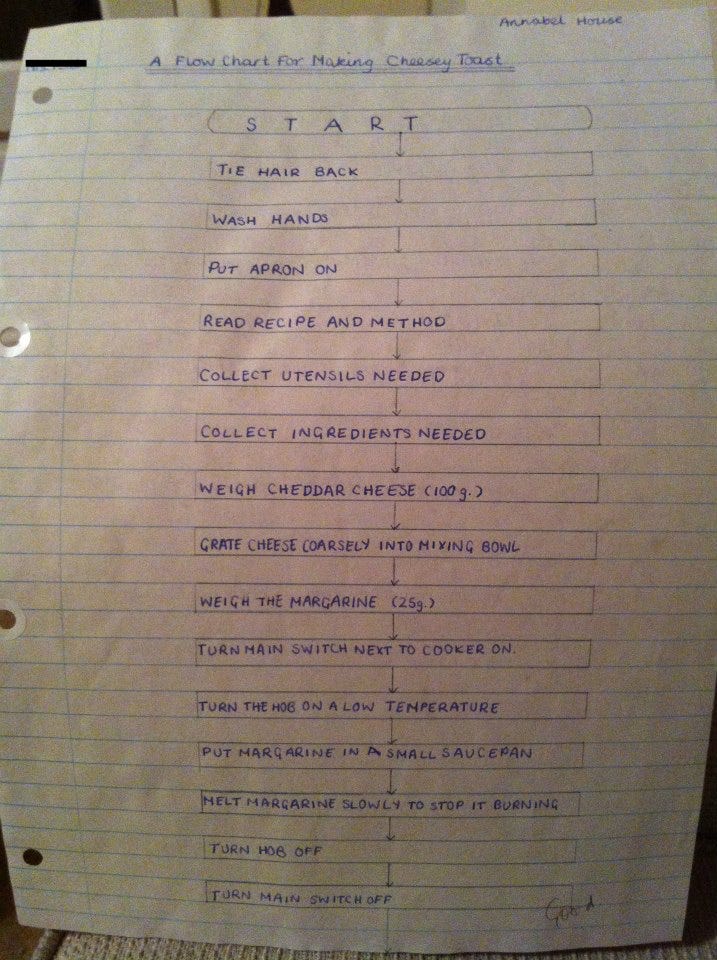 Annabel House
A Flow Chart For Making Cheesey Toast
START
TIE HAIR BACK
WASH HANDS
PUT APRON ON
READ RECIPE AND METHOD
COLLECT UTENSILS NEEDED
COLLECT INGREDIENTS NEEDED
WEIGH CHEDDAR CHEESE (100g.)
GRATE CHEESE COARSELY INTO MIXING BOWL
WEIGH THE MARGARINE (25g.)
TURN MAIN SWITCH NEXT TO COOKER ON.
TURN THE HOB ON A LOW TEMPERATURE
PUT MARGARINE IN A SMALL SAUCEPAN
MELT MARGARINE SLOWLY TO STOP IT BURNING
TURN HOB OFF
TURN MAIN SWITCH OFF
Good